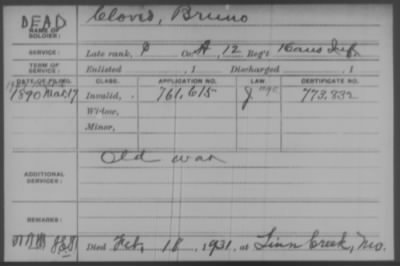 DEAD
NAME OF SOLDIER: Clovis, Bruno
SERVICE: Late rank, P Co. A, 12 Reg't Kans Inf
TERM OF SERVICE: Enlisted , 1 Discharged , 1
DATE OF FILING. CLASS. APPLICATION NO. LAW. CERTIFICATE NO.
1890 Mar 17 Invalid, 761,615 J 773,832
Widow,
Minor,
Old war
ADDITIONAL SERVICES:
REMARKS:
Died Feb 18, 1931, at Linn Creek, Mo.